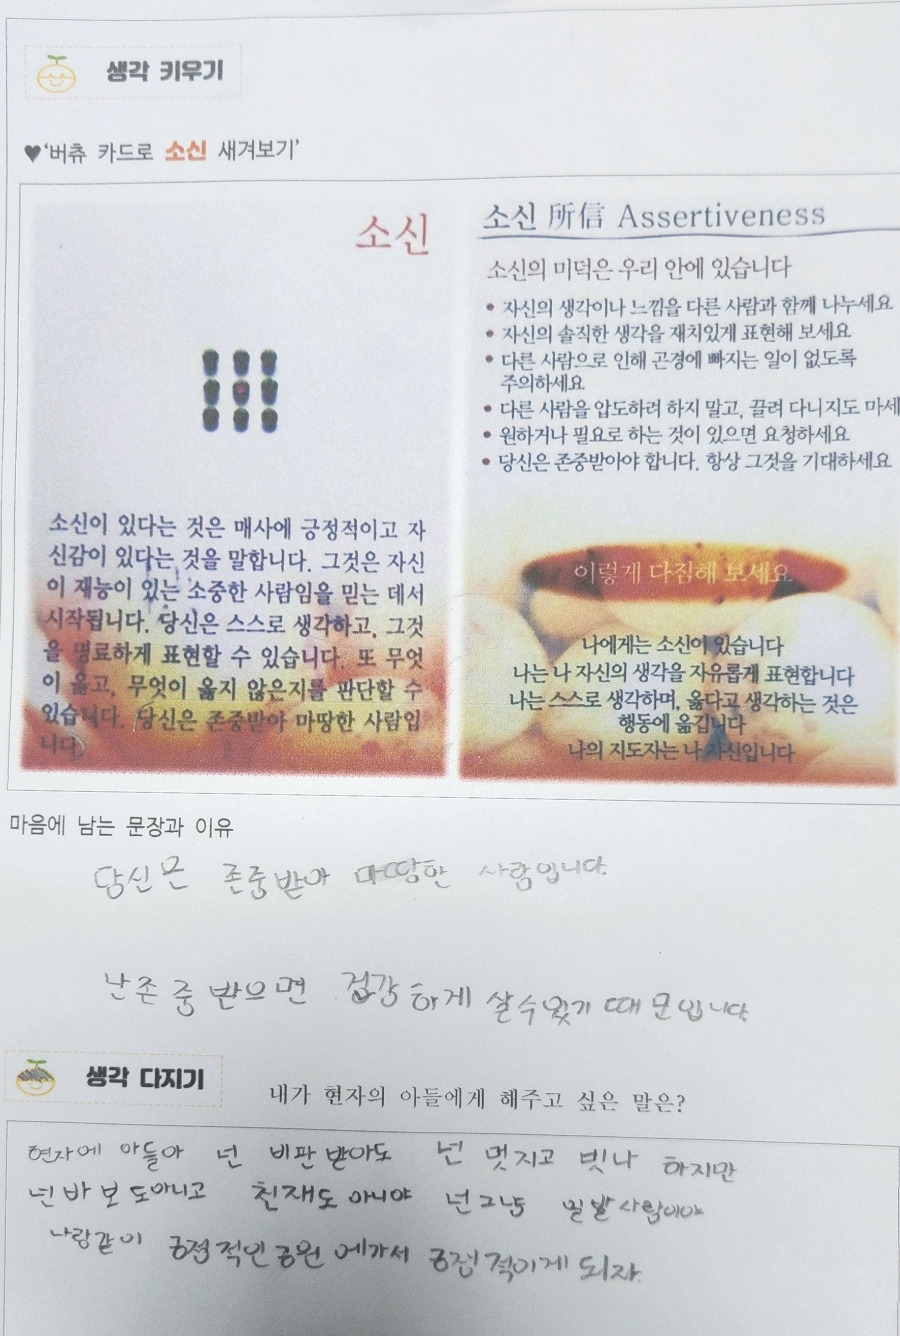 생각 키우기
♥'버츄 카드로 소신 새겨보기'
소신
소신이 있다는 것은 매사에 긍정적이고 자
신감이 있다는 것을 말합니다. 그것은 자신
이 재능이 있는 소중한 사람임을 믿는 데서
시작됩니다. 당신은 스스로 생각하고, 그것
을 명료하게 표현할 수 있습니다. 또 무엇
이 옳고, 무엇이 옳지 않은지를 판단할 수
있습니다. 당신은 존중받아 마땅한 사람입
니다
소신 所信 Assertiveness
소신의 미덕은 우리 안에 있습니다
• 자신의 생각이나 느낌을 다른 사람과 함께 나누세요
• 자신의 솔직한 생각을 재치있게 표현해 보세요
• 다른 사람으로 인해 곤경에 빠지는 일이 없도록
주의하세요
• 다른 사람을 압도하려 하지 말고, 끌려 다니지도 마세
• 원하거나 필요로 하는 것이 있으면 요청하세요
• 당신은 존중받아야 합니다. 항상 그것을 기대하세요
이렇게 다짐해 보세요
나에게는 소신이 있습니다
나는 나 자신의 생각을 자유롭게 표현합니다
나는 스스로 생각하며, 옳다고 생각하는 것은
행동에 옮깁니다
나의 지도자는 나 자신입니다
마음에 남는 문장과 이유
당신은 존중받아 마땅한 사람입니다
난 존중 받으면 하게 살수있기 때문입니다
생각 다지기
내가 현자의 아들에게 해주고 싶은 말은?
현자에 아들아 넌 비판 받아도 넌 멋지고 빗나 하지만
넌 바보도아니고 천재도 아니야 넌그냥 사람이야
나랑같이 긍정적인공원에가서 긍정적이게 되자.